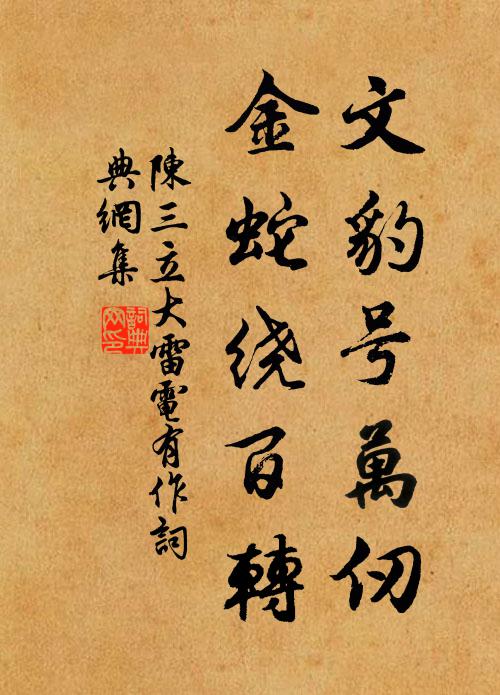 文豹号萬仞
金蛇绕百轉
陳三立大雷電有作詞
典網集
詞典網印